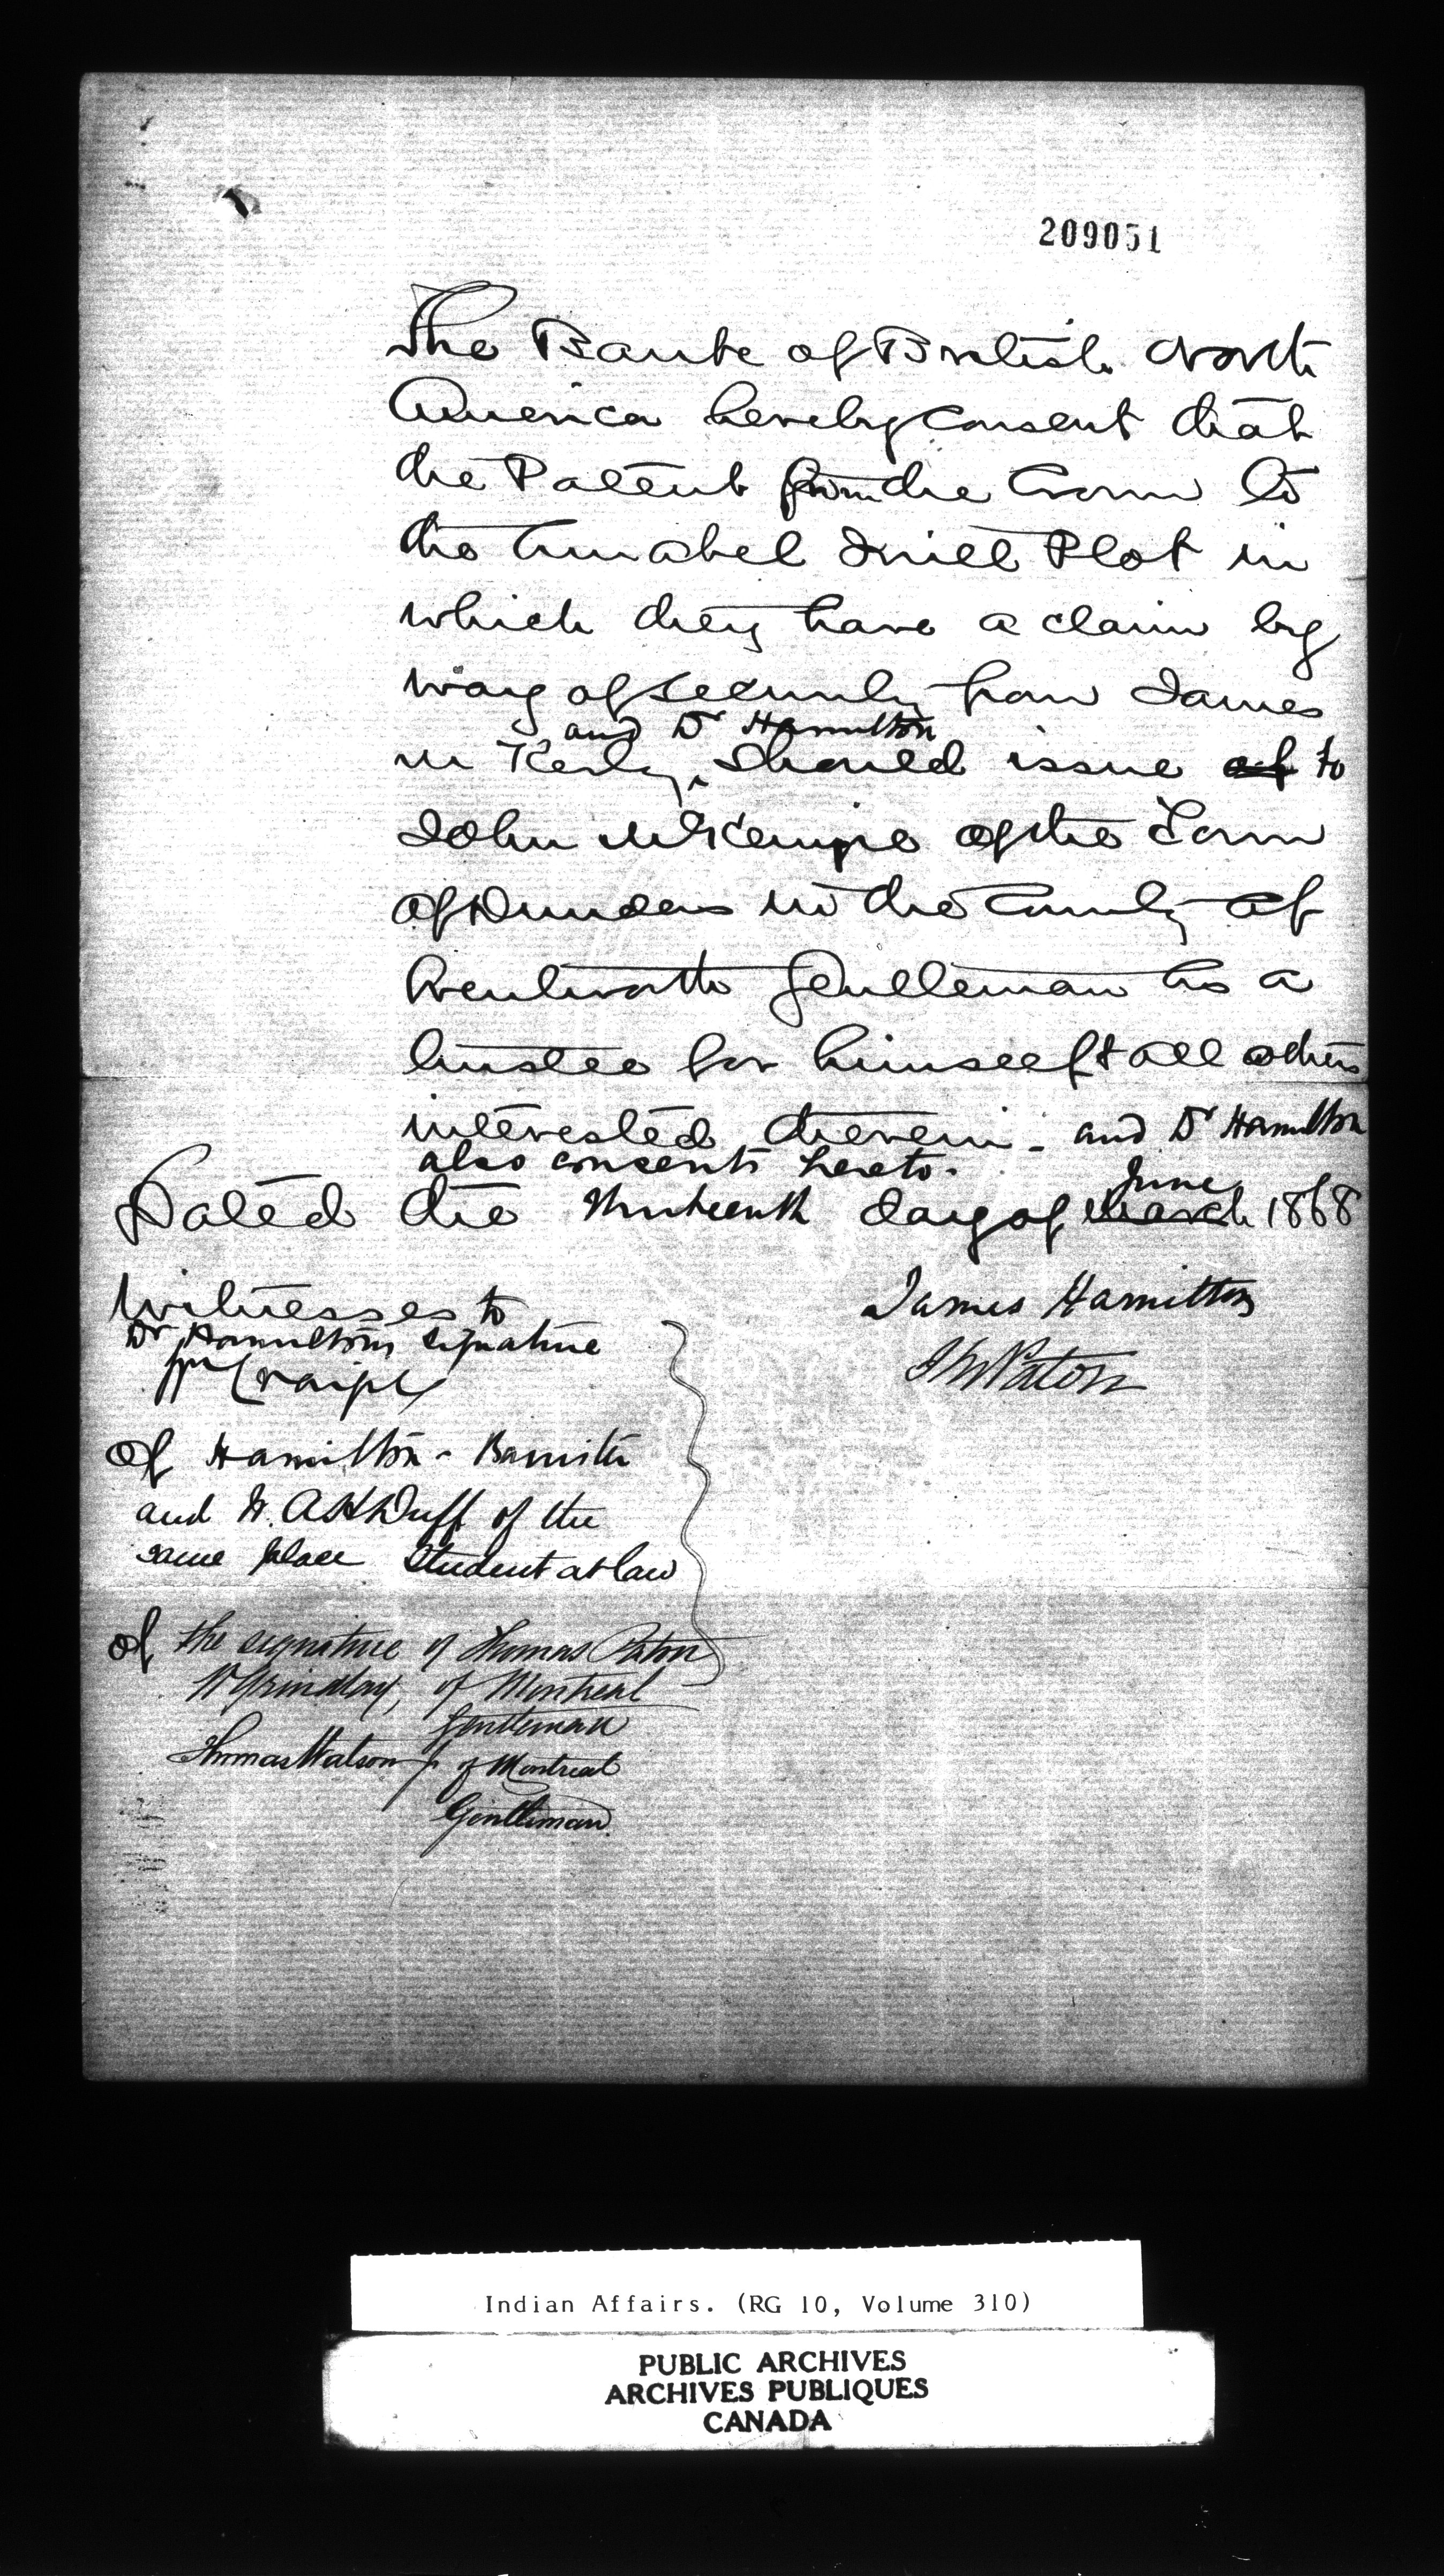 209051
The Bank of British North
America hereby consent that
the Patent from the Crown to
the Amabel Mill Plot in
which they have a claim by
way of security from James
and Dr Hamilton
should issue of to
John McKenzie of the Town
of Dundas in the County of
Wentworth Gentleman as a
trustee for himself & all others
interested therein - and Dr Hamilton
also consents hereto.
Dated the day of March June 1868
Witnesses to
Dr Hamiltons signature
James Hamilton
Paton
of Hamilton - Barrister
and H. A H Duff of the
same place Student at law
of the signature of Thomas Paton
of Montreal
Gentleman
Thomas Watson Jr of Montreal
Gentleman
Indian Affairs. (RG 10, Volume 310)
PUBLIC ARCHIVES
ARCHIVES PUBLIQUES
CANADA